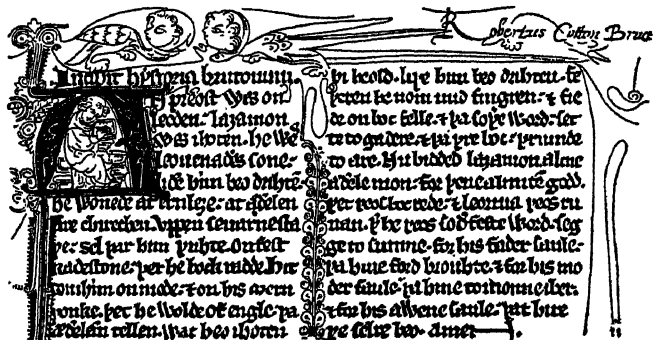 Robertus Cotton Bruceus
Incipit hystoria brutonum.
AN preost wes on
leoden. laȝamon
wes ihoten. he wes
leouenaðes sone.
liðe him beo drihtē.
he wonede at ernleȝe. at æðelen
are chirechen. vppen seuarne sta
þe. sel þar him þuhte. onfest
radestone. þer he bock radde. hit
com him on mode. & on his mern
þonke. þet he wolde of engle. þa
æðelæn tellen. wat heo ihoten
heold. liþe him beo drihten. fe
þeren he nom mid fingren. & fie
de on boc felle. & þa soþe word. set
te to gadere. & þa þre boc. þrumde
to are. Nu biddeð laȝamon alcne
æðele mon. for þene almitē godd.
þet þeos boc rede. & leornia þeos ru
nan. þ he þeos soðfeste word. seg
ge to sumne. for his fader saule.
þa hine forð brouhte. & for his mo
der saule. þa hine to monne iber.
& for his awene saule. þat hire
þe selre beo. amen.